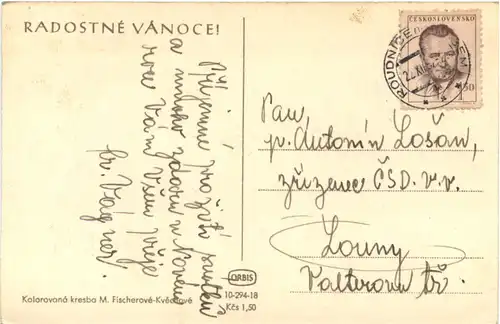 RADOSTNÉ VÁNOCE!
Příjemné prožití svátků
a mnoho zdraví v Novém
roce Vám Všem přeje
fr. Vágner.
ČESKOSLOVENSKO
ROUDNICE
Pan
p. Antonín Lošan,
zřízenec ČSD. v.v.
Louny
Valterova tř.
ORBIS
10-294-18
Kčs 1,50
Kolorovaná kresba M. Fischerové-Kvěchové